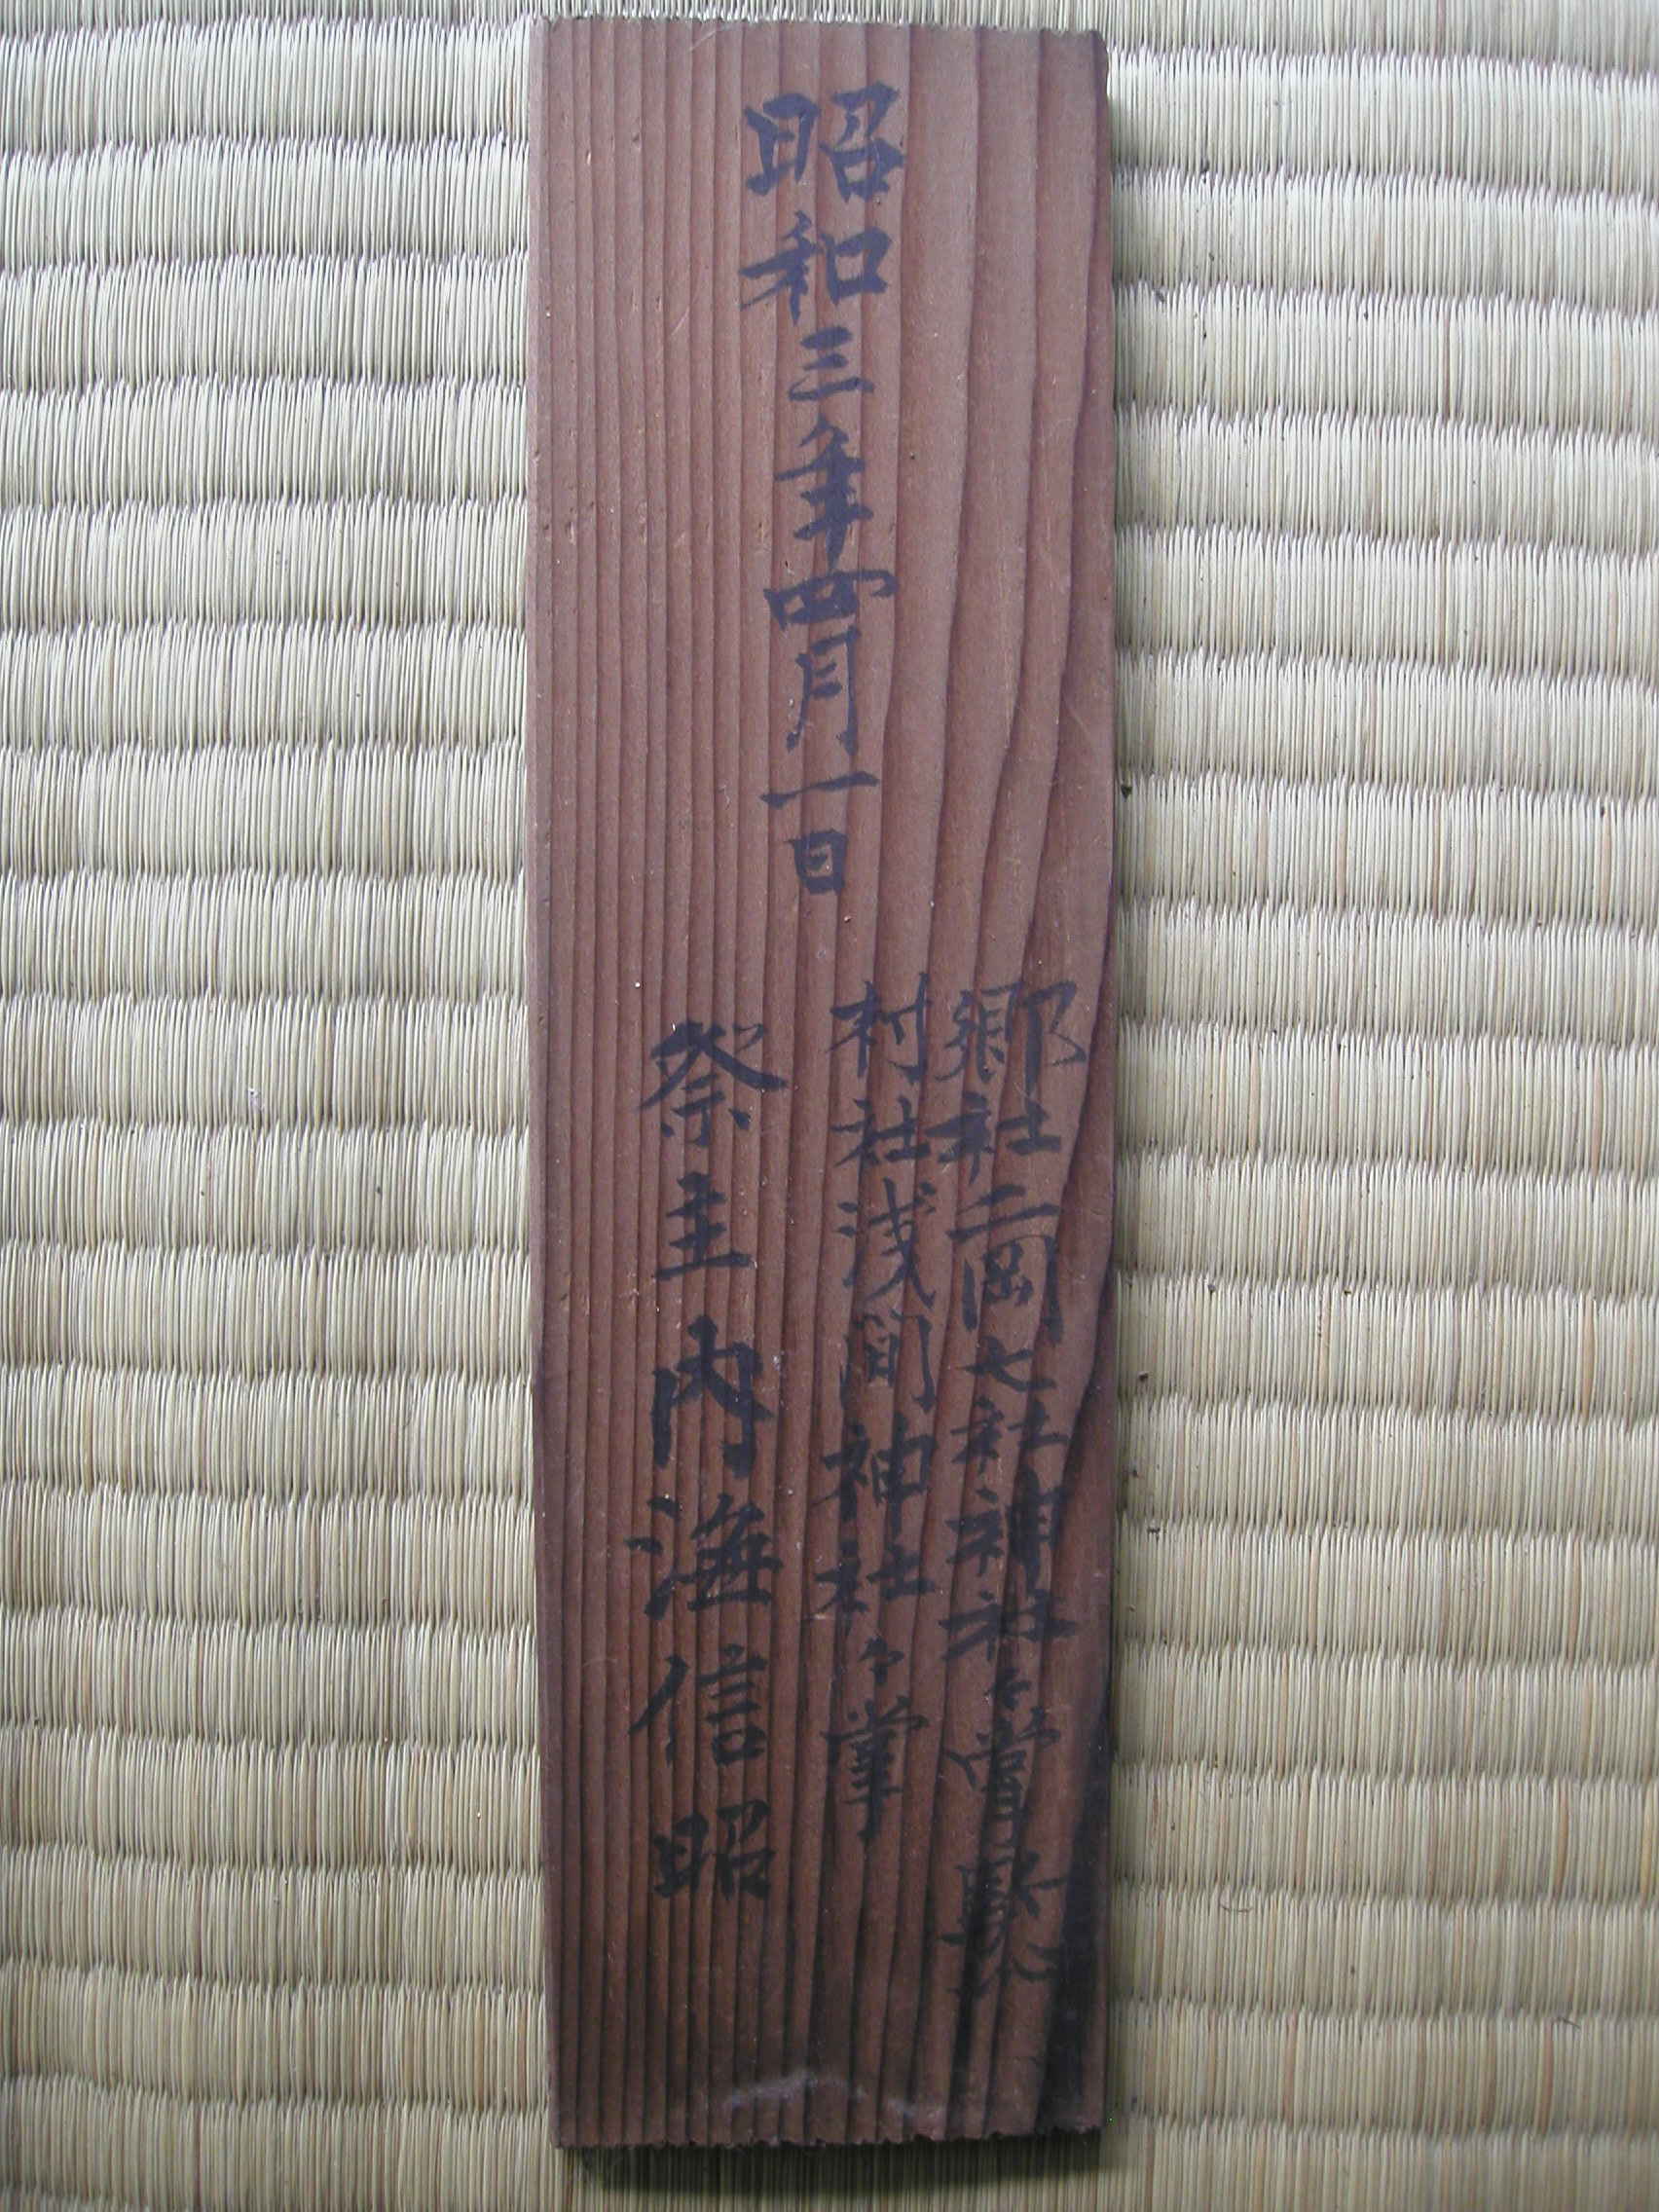 昭和三年四月一日
郷社二岡七社神社々掌
村社浅間神社々掌
祭主内海信昭